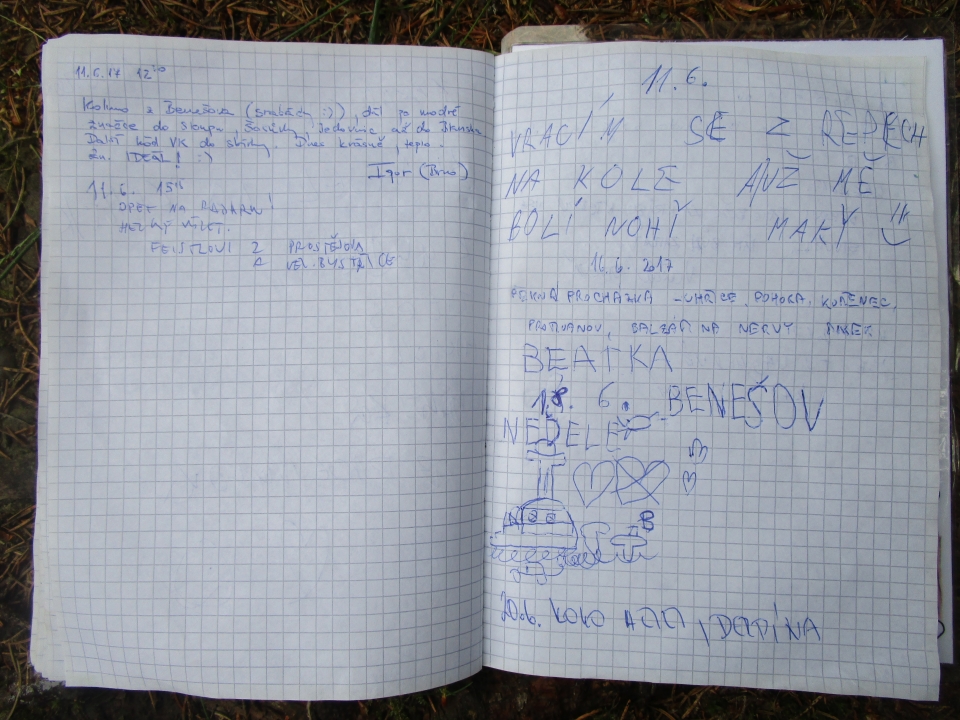 11.6.17 12
Kolmo z Benešova (snabády :)), dál po modré
značce do Sloupu, Šošůvky, Jedovnic až do Blanska
Další kód VK do sbírky. Dnes krásně, teplo.
IDEÁL! :)
Igor (Brno)
11.6. 15
OPĚT NA !
HEZKÝ VÝLET.
Z PROSTĚJOVA
A VEL. BYSTŘICE
11.6.
VRACÍM SE Z ŘEPECH
NA KOLE ANŽ MĚ
BOLÍ NOHÍ MAKÝ
16.6. 2017
PĚKNÁ PROCHÁZKA - UHŘICE, POHORA, KOŘENEC,
PROTIVANOV, BALZÁM NA NERVY
BEÁTKA
18. 6. BENEŠOV
NEDELE
B
20.6. KOKO